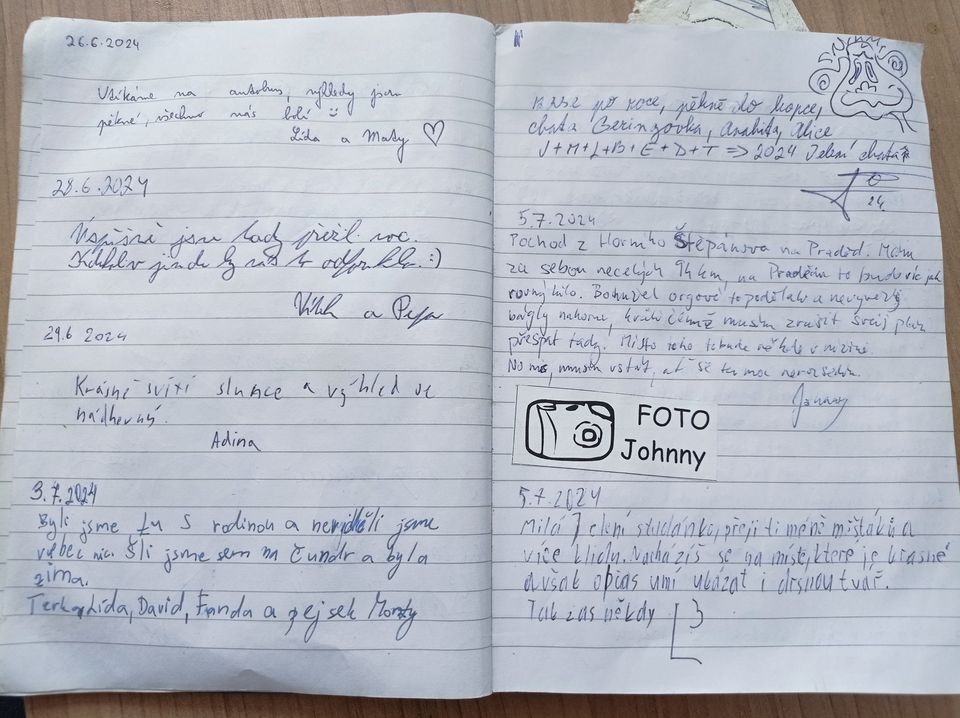 26.6.2024
Utíkáme na autobus, výhledy jsou
pěkné, všechno nás bolí
Lída a Matty
28.6.2024
Úspěšně jsme tady přežil
jinde by nás to
a Pepa
29.6 2024
Krásně svítí slunce a výhled je
nádherný.
Adina
3.7.2024
Byli jsme tu s rodinou a neviděli jsme
vůbec nic. Šli jsme sem na Čundr a byla
zima.
Terka, Lída, David, Fanda a pejsek Monty
po roce, pěkně do kopce,
chata Beringovka, Anahita, Alice
J+M+L+B+E+D+T => 2024 Jelení chata
24.
5.7.2024
Pochod z Horního Štěpánova na Praděd. Mám
za sebou necelých 94 km, na Pradědu to bude víc jak
rovný kilo. Bohužel orgové to podělali a nevyvezli
bágly nahoru, kvůli čemuž musím zrušit svůj plán
přespat tady. Místo toho to bude někde v nížině.
No nic, musím vstát, ať se tu moc nerozsedím.
Johnny
FOTO
Johnny
5.7.2024
Milá Jelení studánko, přeji ti méně mištáků a
více klidu. Nacházíš se na místě, které je krásné
avšak občas umí ukázat i drsnou tvář.
Tak zas někdy